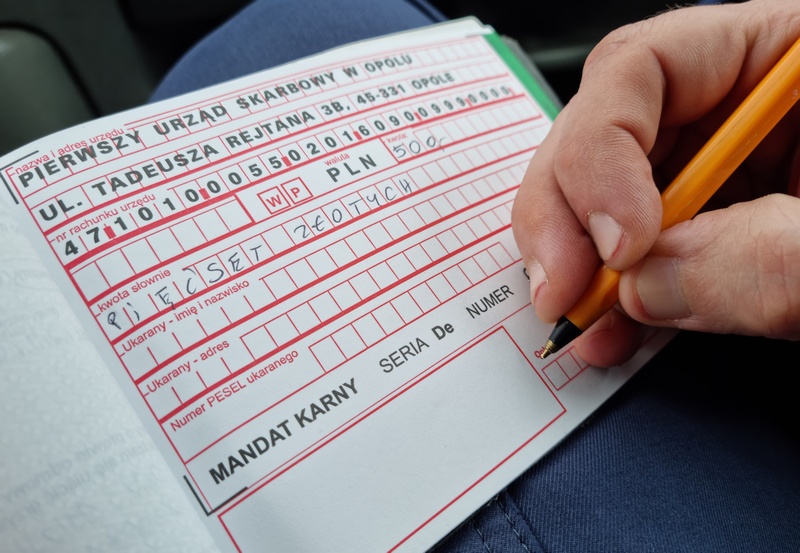 nazwa i adres urzędu
PIERWSZY URZĄD SKARBOWY W OPOLU
UL. TADEUSZA REJTANA 3B, 45-331 OPOLE
nr rachunku urzędu
47101000550201609099990000
WP waluta PLN kwota 500,-
kwota słownie
PIĘĆSET ZŁOTYCH
Ukarany - imię i nazwisko
Ukarany - adres
Numer PESEL ukaranego
MANDAT KARNY SERIA De NUMER